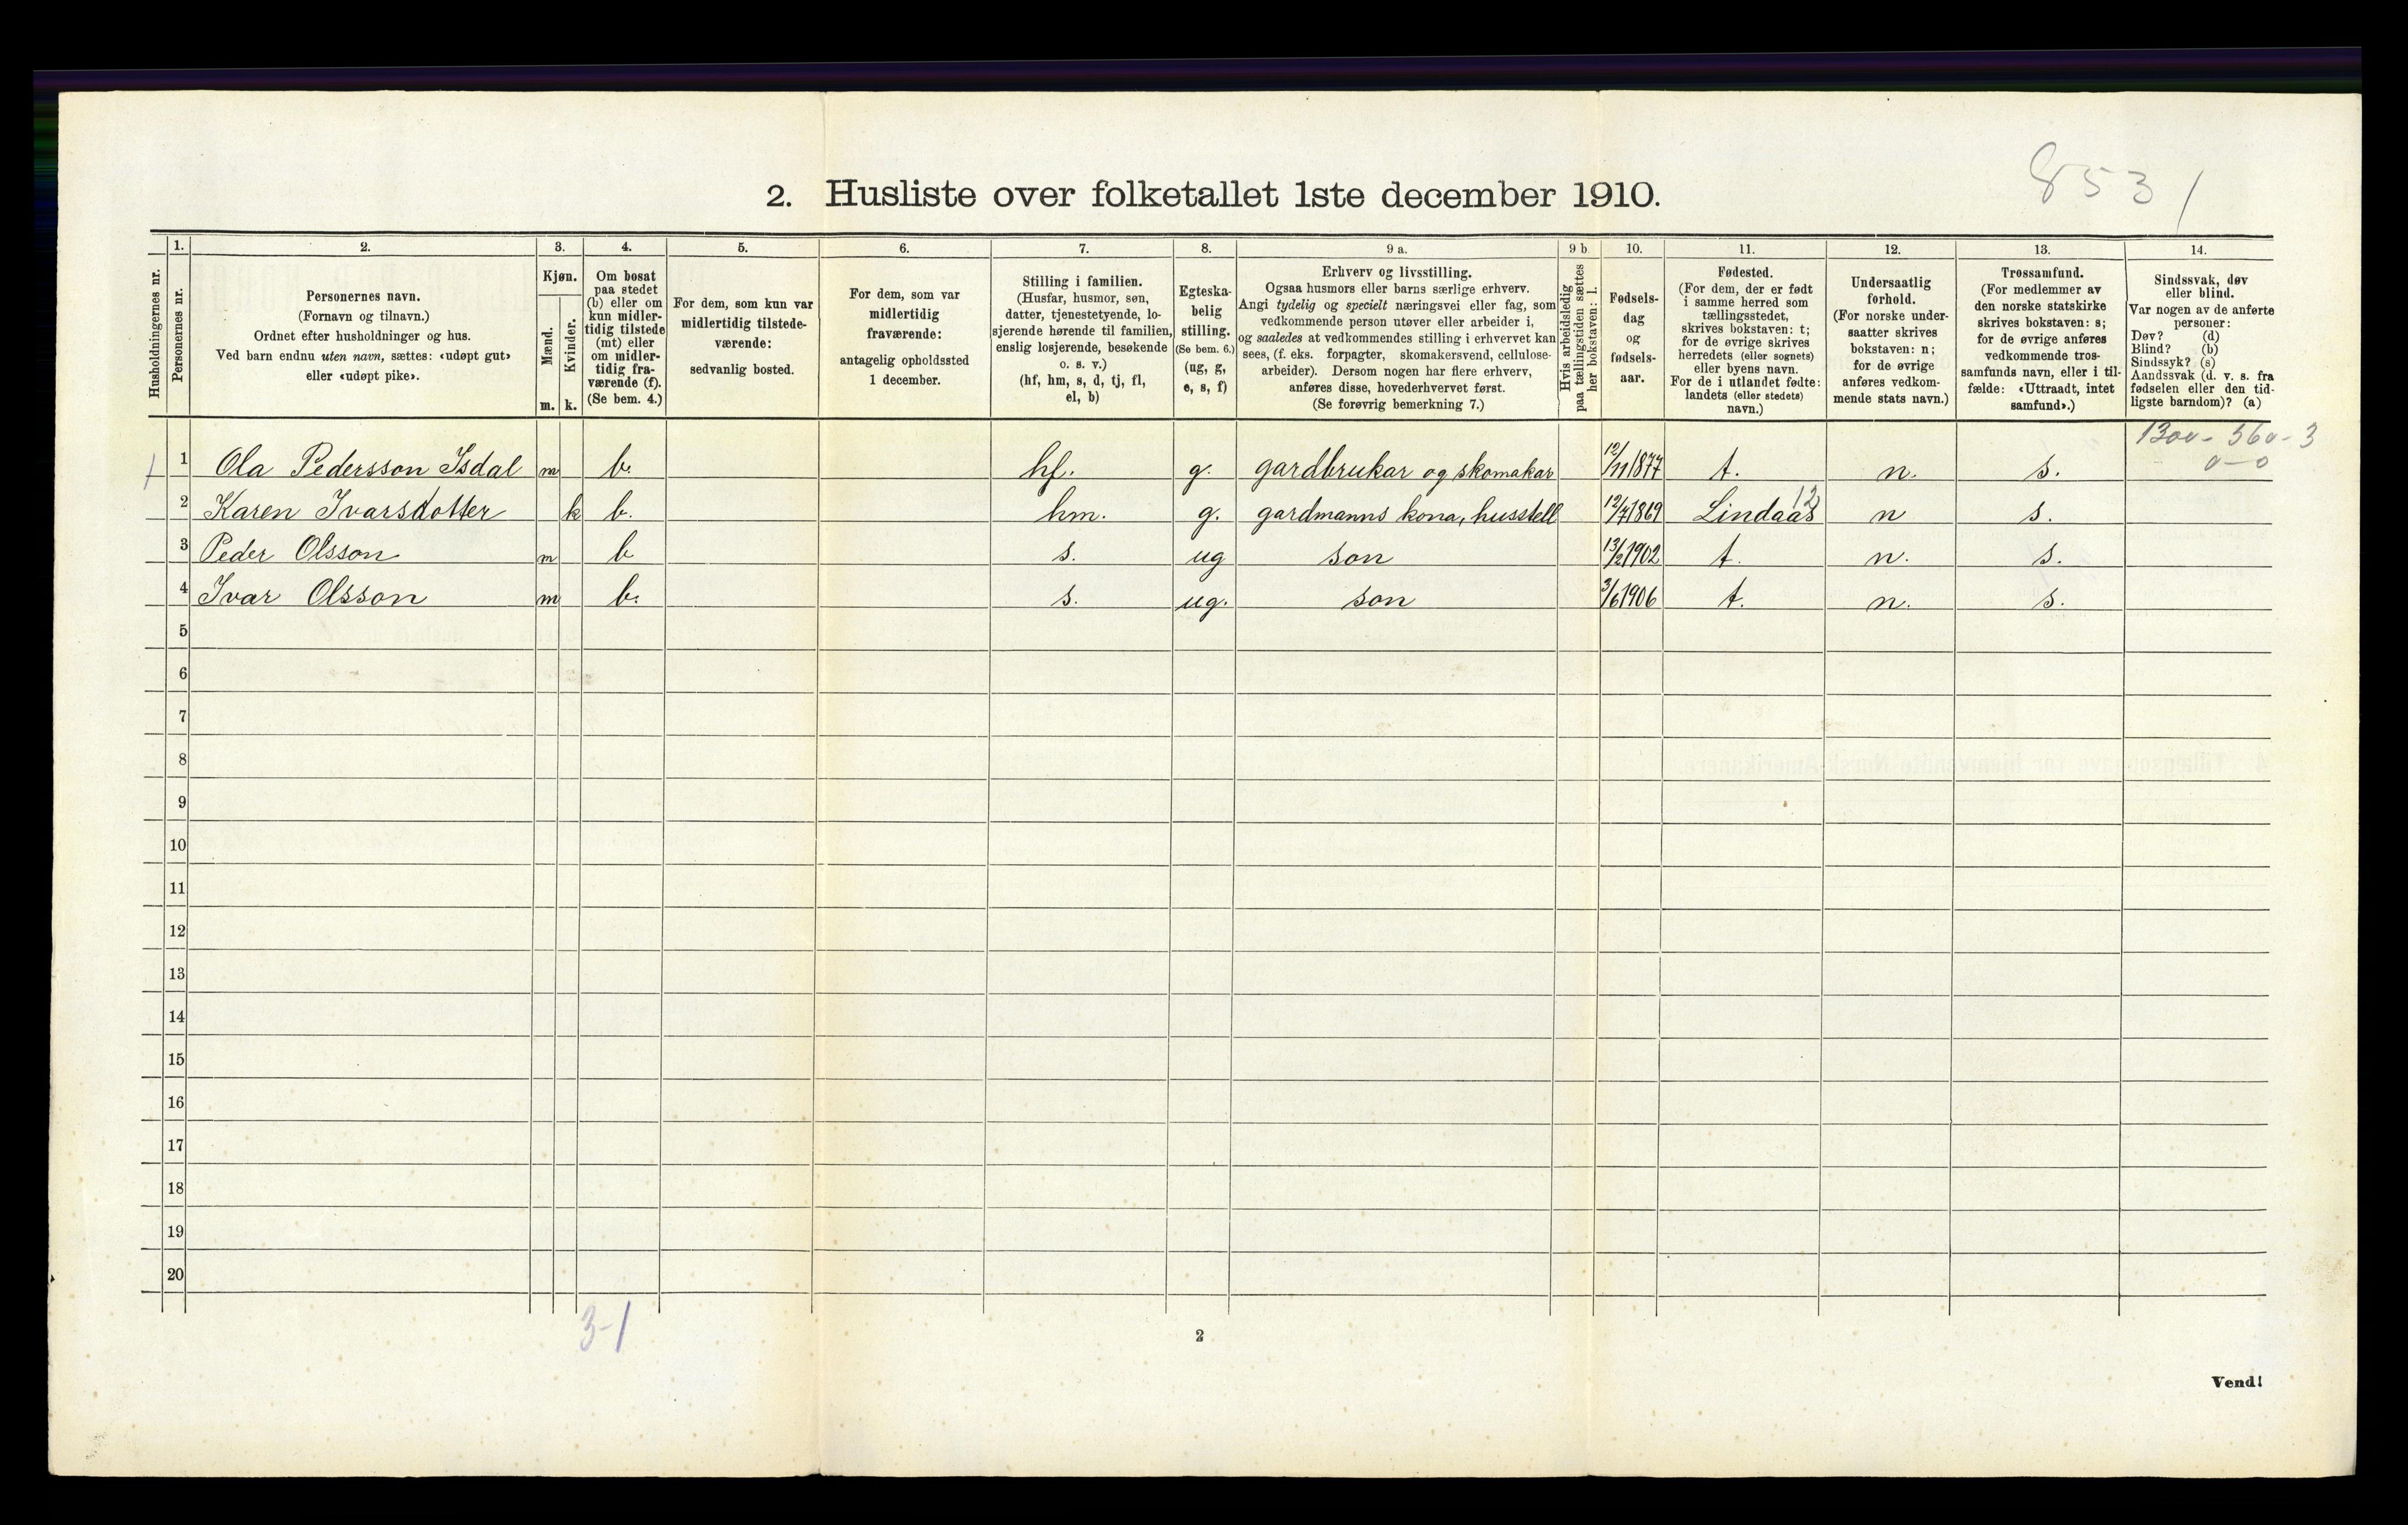 853 /
2. Husliste over folketallet 1ste december 1910.
Husholdningernes nr.
1.
Personernes nr.
2.
Personernes navn.
(Fornavn og tilnavn.)
Ordnet efter husholdninger og hus.
Ved barn endnu uten navn, sættes: «udøpt gut»
eller «udøpt pike».
3.
Kjøn.
Mænd.
Kvinder.
m. k.
4.
Om bosat
paa stedet
(b) eller om
kun midler-
tidig tilstede
(mt) eller
om midler-
tidig fra-
værende (f).
(Se bem. 4.)
5.
For dem, som kun var
midlertidig tilstede-
værende:
sedvanlig bosted.
6.
For dem, som var
midlertidig
fraværende:
antagelig opholdssted
1 december.
7.
Stilling i familien.
(Husfar, husmor, søn,
datter, tjenestetyende, lo-
sjerende hørende til familien,
enslig losjerende, besøkende
o. s. v.)
(hf, hm, s, d, tj, fl,
el, b)
8.
Egteska-
belig
stilling.
(Se bem. 6.)
(ug, g,
e, s, f)
9 a.
Erhverv og livsstilling.
Ogsaa husmors eller barns særlige erhverv.
Angi tydelig og specielt næringsvei eller fag, som
vedkommende person utøver eller arbeider i,
og saaledes at vedkommendes stilling i erhvervet kan
sees, (f. eks. forpagter, skomakersvend, cellulose-
arbeider). Dersom nogen har flere erhverv,
anføres disse, hovederhvervet først.
(Se forøvrig bemerkning 7.)
9 b
Hvis arbeidsledig
paa tællingstiden sættes
her bokstaven: l.
10.
Fødsels-
dag
og
fødsels-
aar.
11.
Fødested.
(For dem, der er født
i samme herred som
tællingsstedet,
skrives bokstaven: t;
for de øvrige skrives
herredets (eller sognets)
eller byens navn.
For de i utlandet fødte:
landets (eller stedets)
navn.)
12.
Undersaatlig
forhold.
(For norske under-
saatter skrives
bokstaven: n;
for de øvrige
anføres vedkom-
mende stats navn.)
13.
Trossamfund.
(For medlemmer av
den norske statskirke
skrives bokstaven: s;
for de øvrige anføres
vedkommende tros-
samfunds navn, eller i til-
fælde: «Uttraadt, intet
samfund».)
14.
Sindssvak, døv
eller blind.
Var nogen av de anførte
personer:
Døv? (d)
Blind? (b)
Sindssyk? (s)
Aandssvak (d. v. s. fra
fødselen eller den tid-
ligste barndom)? (a)
1300 - 560 - 3
0 - 0
1 Ola Pedersson Isdal m b. hf. g. gardbrukar og skomakar 12/11 1877 t. n. s.
2 Karen Ivarsdotter k b. hm. g. gardmanns kona, husstell 12/7 1869 Lindaas 12 n s.
3 Peder Olsson m b s. ug son 13/2 1902 t. n. s.
4 Ivar Olsson m b. s. ug. son 3/6 1906 t. n. s.
5
6
7
8
9
10
11
12
13
14
15
16
17
18
19
20
3-1
2
Vend!